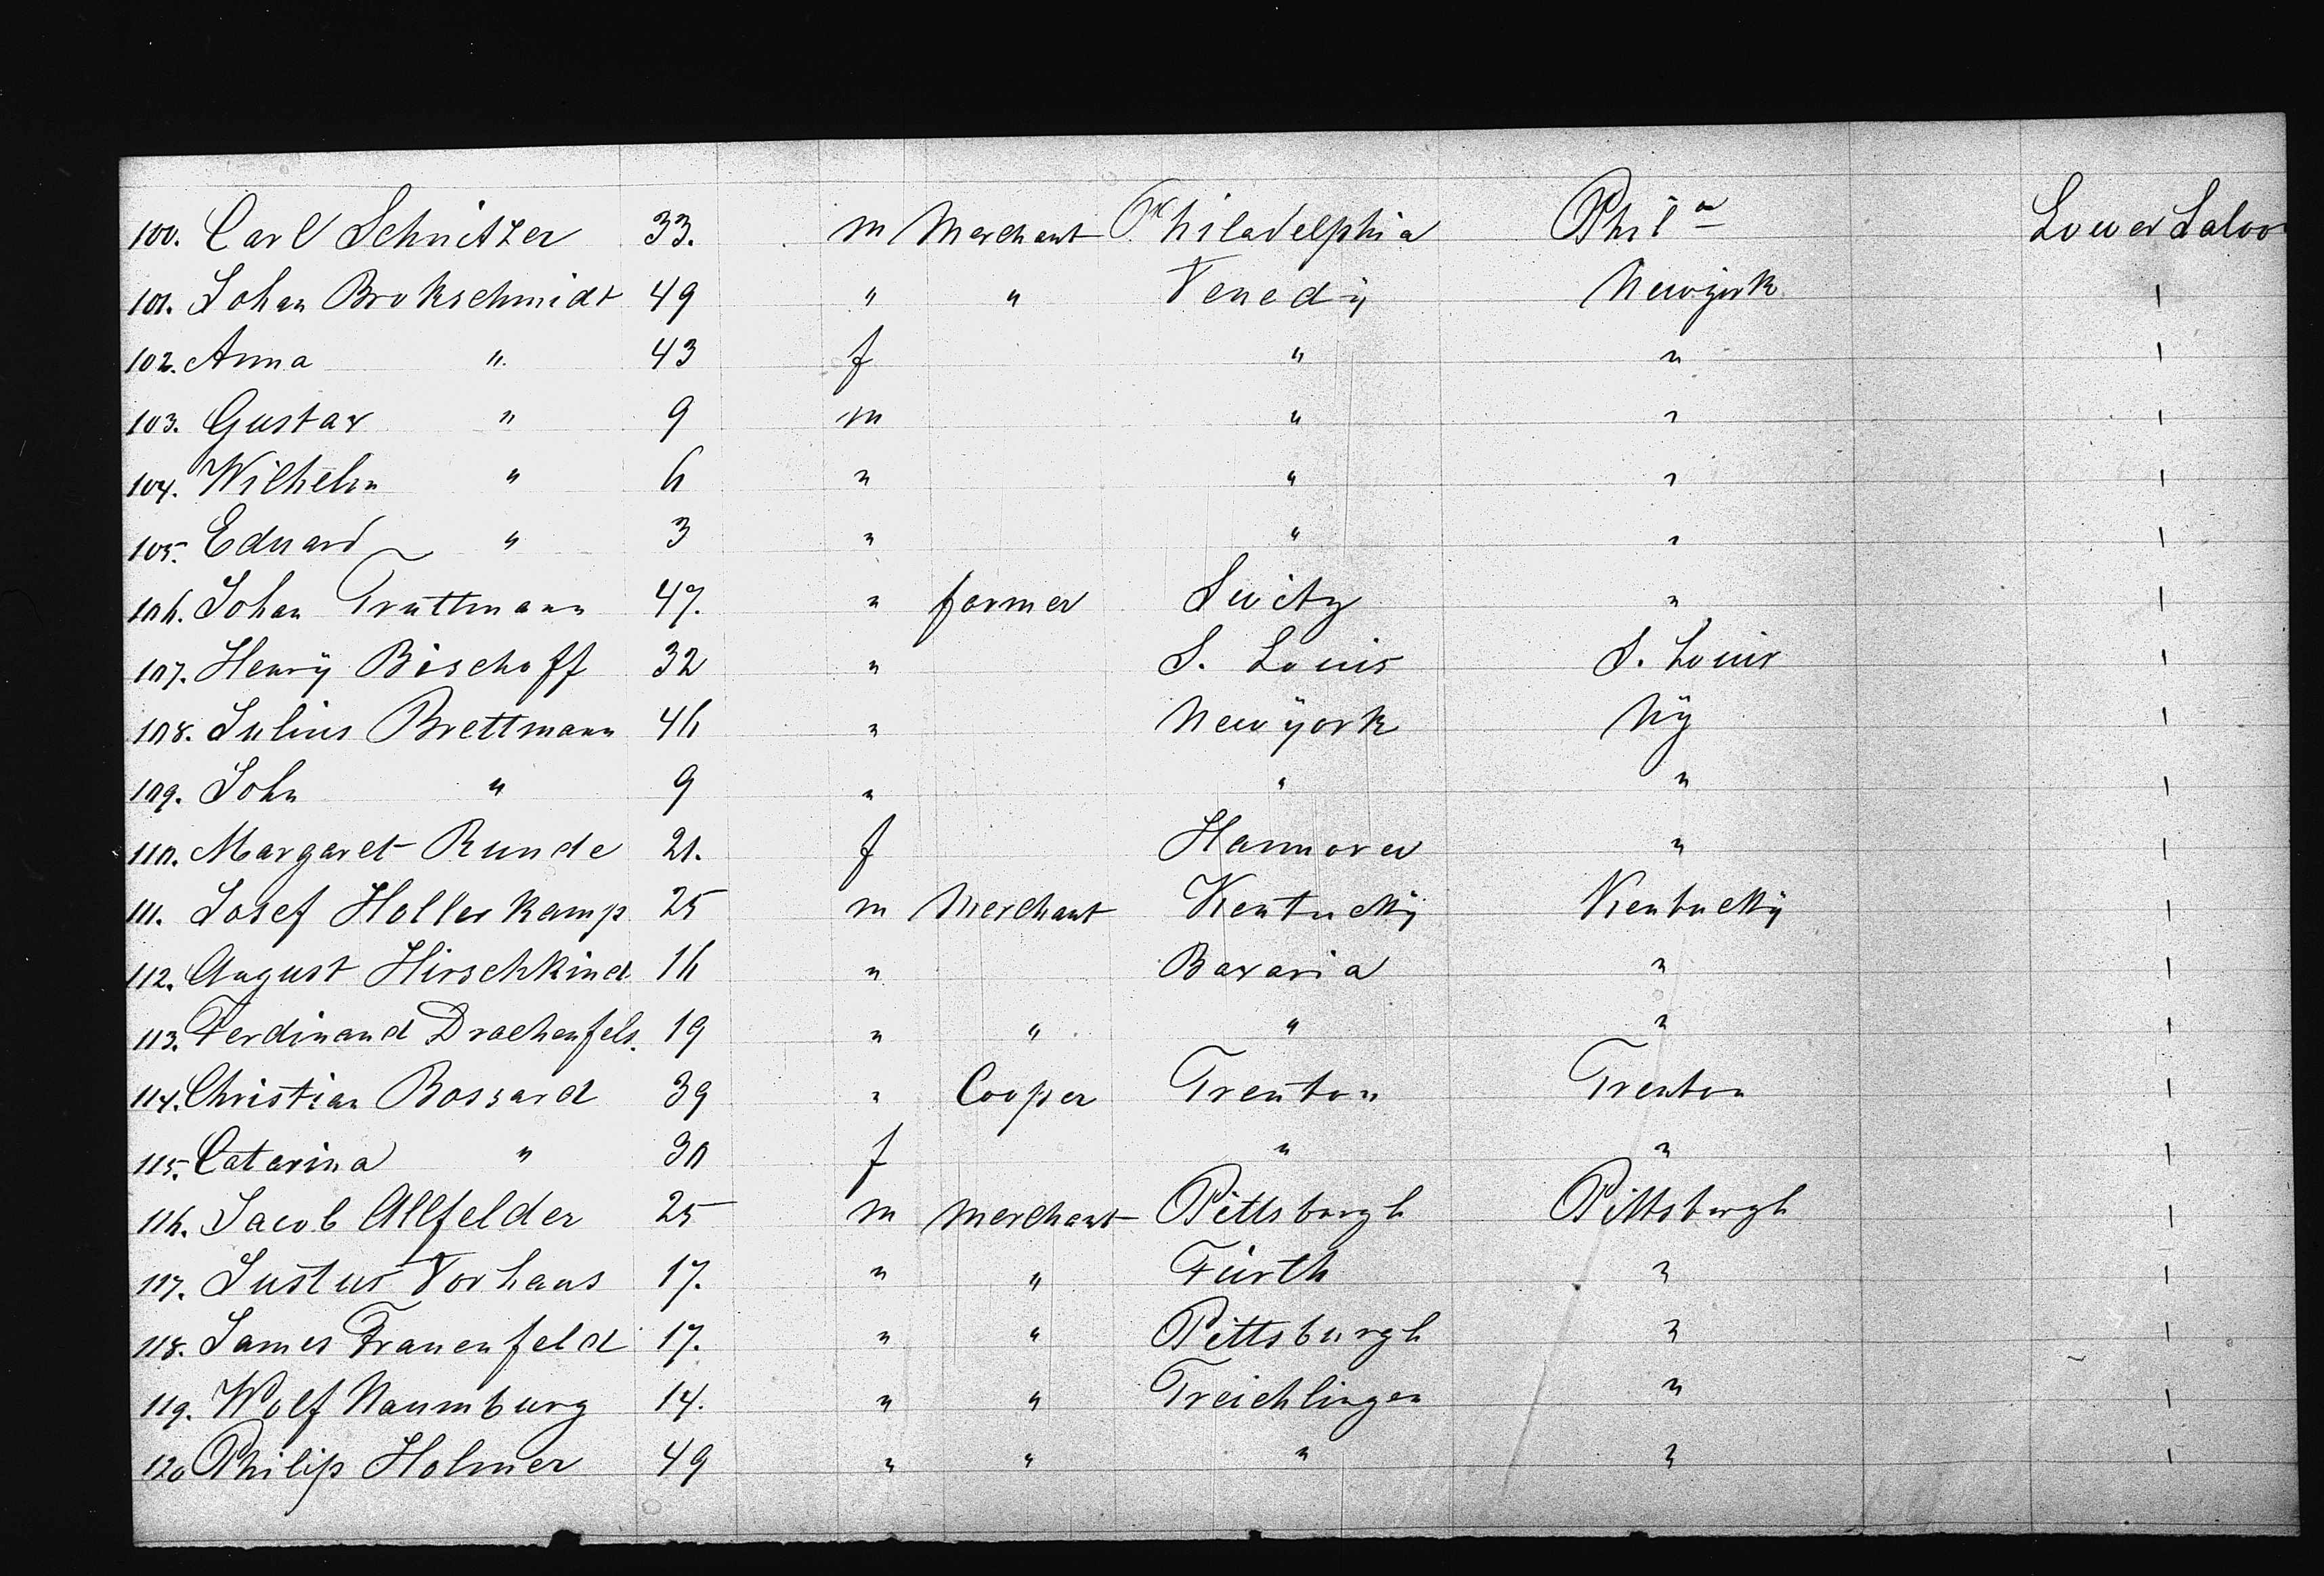 100. Carl Schnitzer 33. m Merchant Philadelphia Phila Lower Saloo
101. Johan Brokschmidt 49 " " Venedÿ Newyork 1
102. Anna " 43 f " " 1
103. Gustav " 9 m " " 1
104. Wilhelm " 6 " " " 1
105. Eduard " 3 " " " 1
106. Johan Truttmann 47. " farmer Switz " 1
107. Henrÿ Bischoff 32 " S. Louis S. Louis 1
108. Julius Brettmann 46 " New ÿork Nÿ 1
109. John " 9 " " " 1
110. Margaret Runde 21. f Hannover " 1
111. Josef Hollerkamp 25 m Merchant Kentuckÿ Kentuckÿ 1
112. August Hirschkind 16 " Bavaria " 1
113. Ferdinand Drachenfels. 19 " " " " 1
114. Christian Bossard 39 " Cooper Trenton Trenton 1
115. Catarina " 30 f " " 1
116. Jacob Allfelder 25 m Merchant Pittsburgh Pittsburgh 1
117. Justus Vorhaus 17. " " Fürth " 1
118. James Frauenfeld 17. " " Pittsburgh " 1
119. Wolf Naumburg 14. " " Treichlingen " 1
120 Philip Holmer 49 " " " " 1